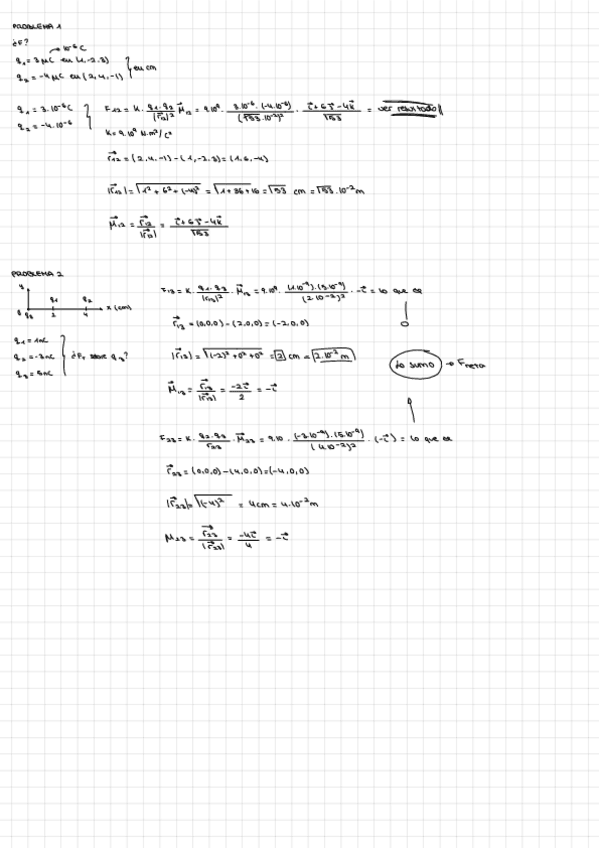 PROBLEMA 1
¿F?
→ 10⁻⁶C
q₁ = 3 μC en (1,-2,3)
q₂ = -4 μC en (2,4,-1) } en cm
q₁ = 3·10⁻⁶C
q₂ = -4·10⁻⁶
F₁₂ = K · q₁·q₂/|r⃗₁₂|² μ⃗₁₂ = 9·10⁹ · 3·10⁻⁶·(-4·10⁻⁶)/(√53·10⁻²)² · (i⃗+6j⃗-4k⃗)/√53 = ver resultado
K = 9·10⁹ N·m²/c²
r⃗₁₂ = (2,4,-1) - (1,-2,3) = (1,6,-4)
|r⃗₁₂| = √(1² + 6² + (-4)²) = √(1+36+16) = √53 cm = √53·10⁻² m
μ⃗₁₂ = r⃗₁₂/|r⃗₁₂| = (i⃗+6j⃗-4k⃗)/√53
PROBLEMA 2
y
q₁ q₂
x (cm)
0 q₃ 2 4
q₁ = 1nC
q₂ = -3nC
q₃ = 5nC
¿Fₜ sobre q₃?
F₁₃ = K · q₁·q₃/|r₁₃|² · μ⃗₁₃ = 9·10⁹ · (1·10⁻⁹)·(5·10⁻⁹)/(2·10⁻²)² · -i⃗ = lo que es
r⃗₁₃ = (0,0,0) - (2,0,0) = (-2,0,0)
|r⃗₁₃| = √((-2)² + 0² + 0²) = 2 cm = 2·10⁻² m
lo sumo → Fneta
μ⃗₁₃ = r⃗₁₃/|r⃗₁₃| = -2i⃗/2 = -i⃗
F₂₃ = K · q₂·q₃/r₂₃ · μ⃗₂₃ = 9·10 · (-3·10⁻⁹)·(5·10⁻⁹)/(4·10⁻²)² · (-i⃗) = lo que es
r⃗₂₃ = (0,0,0) - (4,0,0) = (-4,0,0)
|r⃗₂₃| = √(-4)² = 4cm = 4·10⁻² m
μ₂₃ = r⃗₂₃/|r⃗₂₃| = -4i⃗/4 = -i⃗